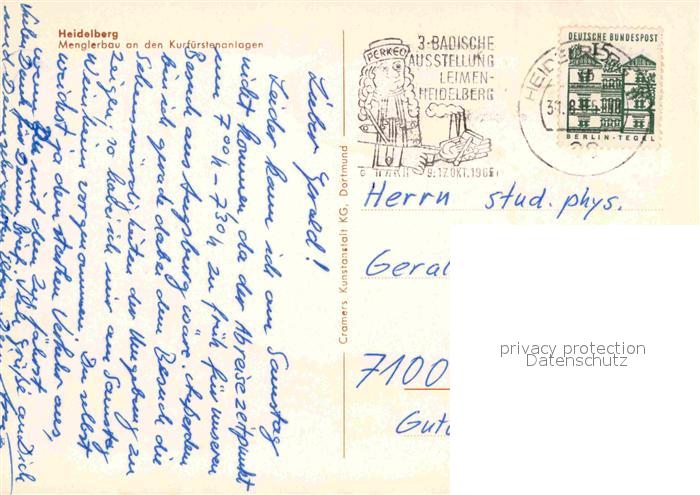 Heidelberg
Menglerbau an den Kurfürstenanlagen
Lieber Gerald!
Leider kann ich am Samstag
nicht kommen, da der Abreisezeitpunkt
um 7 00 h - 7 30 h zu früh für unseren
Besuch aus Augsburg wäre. Außerdem
bin ich gerade dabei dem Besuch die
Sehenswürdigkeiten der Umgebung zu
zeigen; so habe ich mir am Samstag
Weinheim vorgenommen. Du selbst
weichst ja dem starken Verkehr aus,
wenn Du mit dem Zug fährst.
Vielen Dank für Deinen Brief. Viele Grüße an Dich
und
Cramers Kunstanstalt KG, Dortmund
PERKEO
3. BADISCHE
AUSSTELLUNG
LEIMEN-
HEIDELBERG
9.-17. OKT. 1965
HEIDELB
31.8.
DEUTSCHE BUNDESPOST
15
BERLIN-TEGEL
Herrn stud. phys.
Geral
7100
Gut
privacy protection
Datenschutz